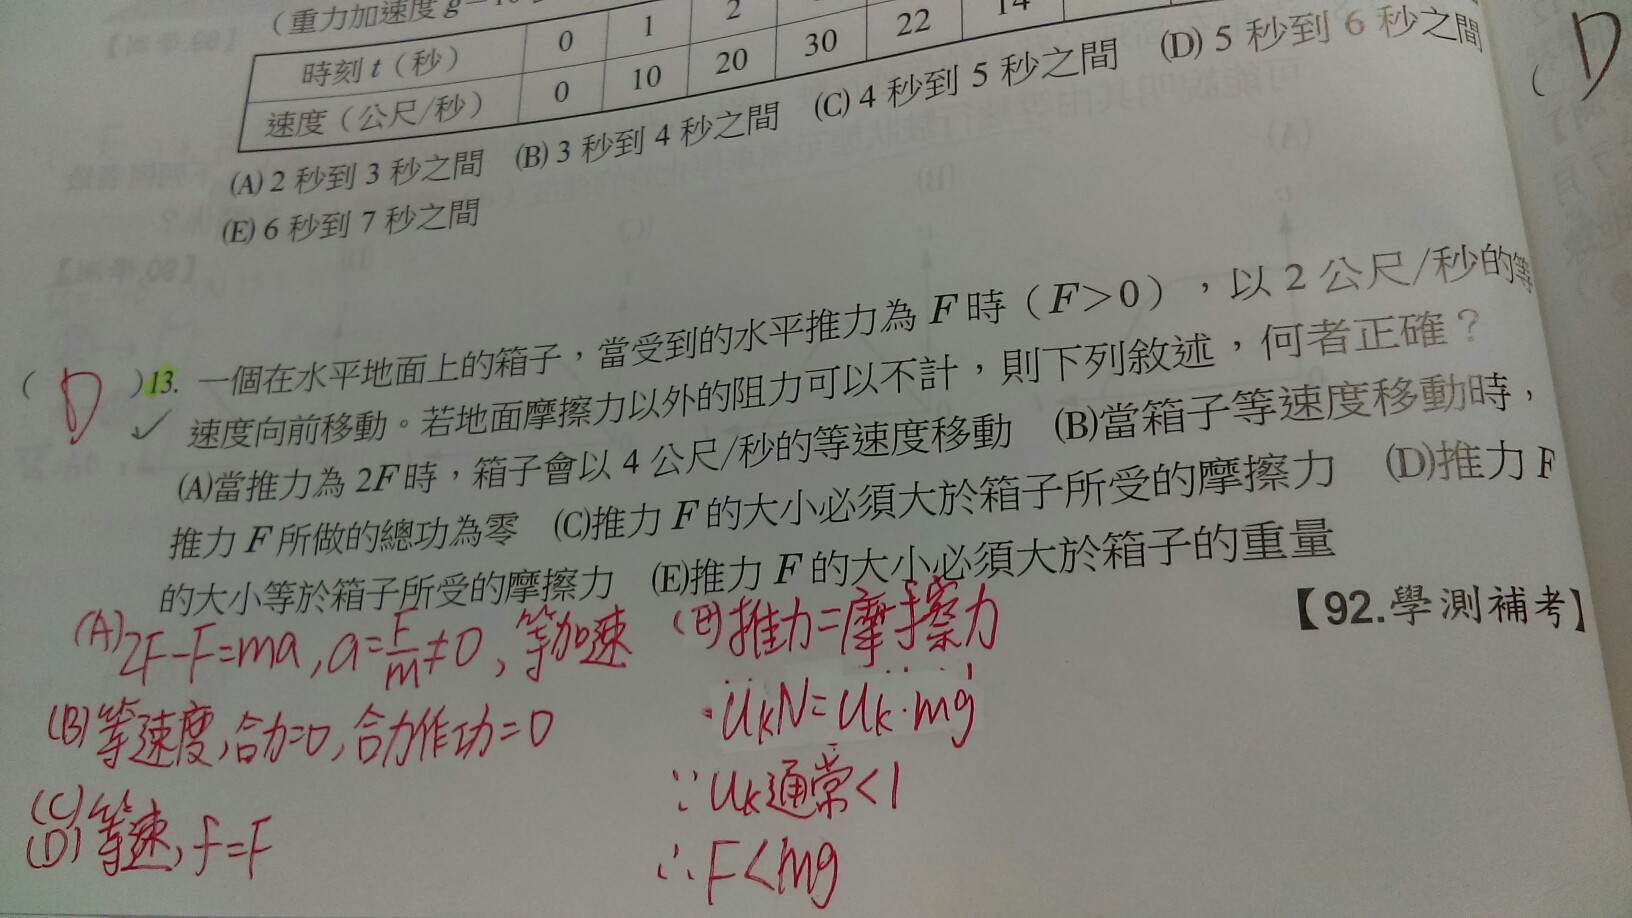 （重力加速度 g＝10
時刻 t（秒） 0 1 2 14
速度（公尺/秒） 0 10 20 30 22
(A) 2 秒到 3 秒之間 (B) 3 秒到 4 秒之間 (C) 4 秒到 5 秒之間 (D) 5 秒到 6 秒之間
(E) 6 秒到 7 秒之間
( D
( D )13. 一個在水平地面上的箱子，當受到的水平推力為 F 時（F＞0），以 2 公尺/秒的等
速度向前移動。若地面摩擦力以外的阻力可以不計，則下列敘述，何者正確？
(A)當推力為 2F 時，箱子會以 4 公尺/秒的等速度移動 (B)當箱子等速度移動時，
推力 F 所做的總功為零 (C)推力 F 的大小必須大於箱子所受的摩擦力 (D)推力 F
的大小等於箱子所受的摩擦力 (E)推力 F 的大小必須大於箱子的重量
【92.學測補考】
(A) 2F-F=ma, a=F/m≠0, 等加速
(B) 等速度,合力=0,合力作功=0
(C)
(D) 等速, f=F
(E) 推力=摩擦力
UkN=Uk·mg
∵Uk通常<1
∴F<mg